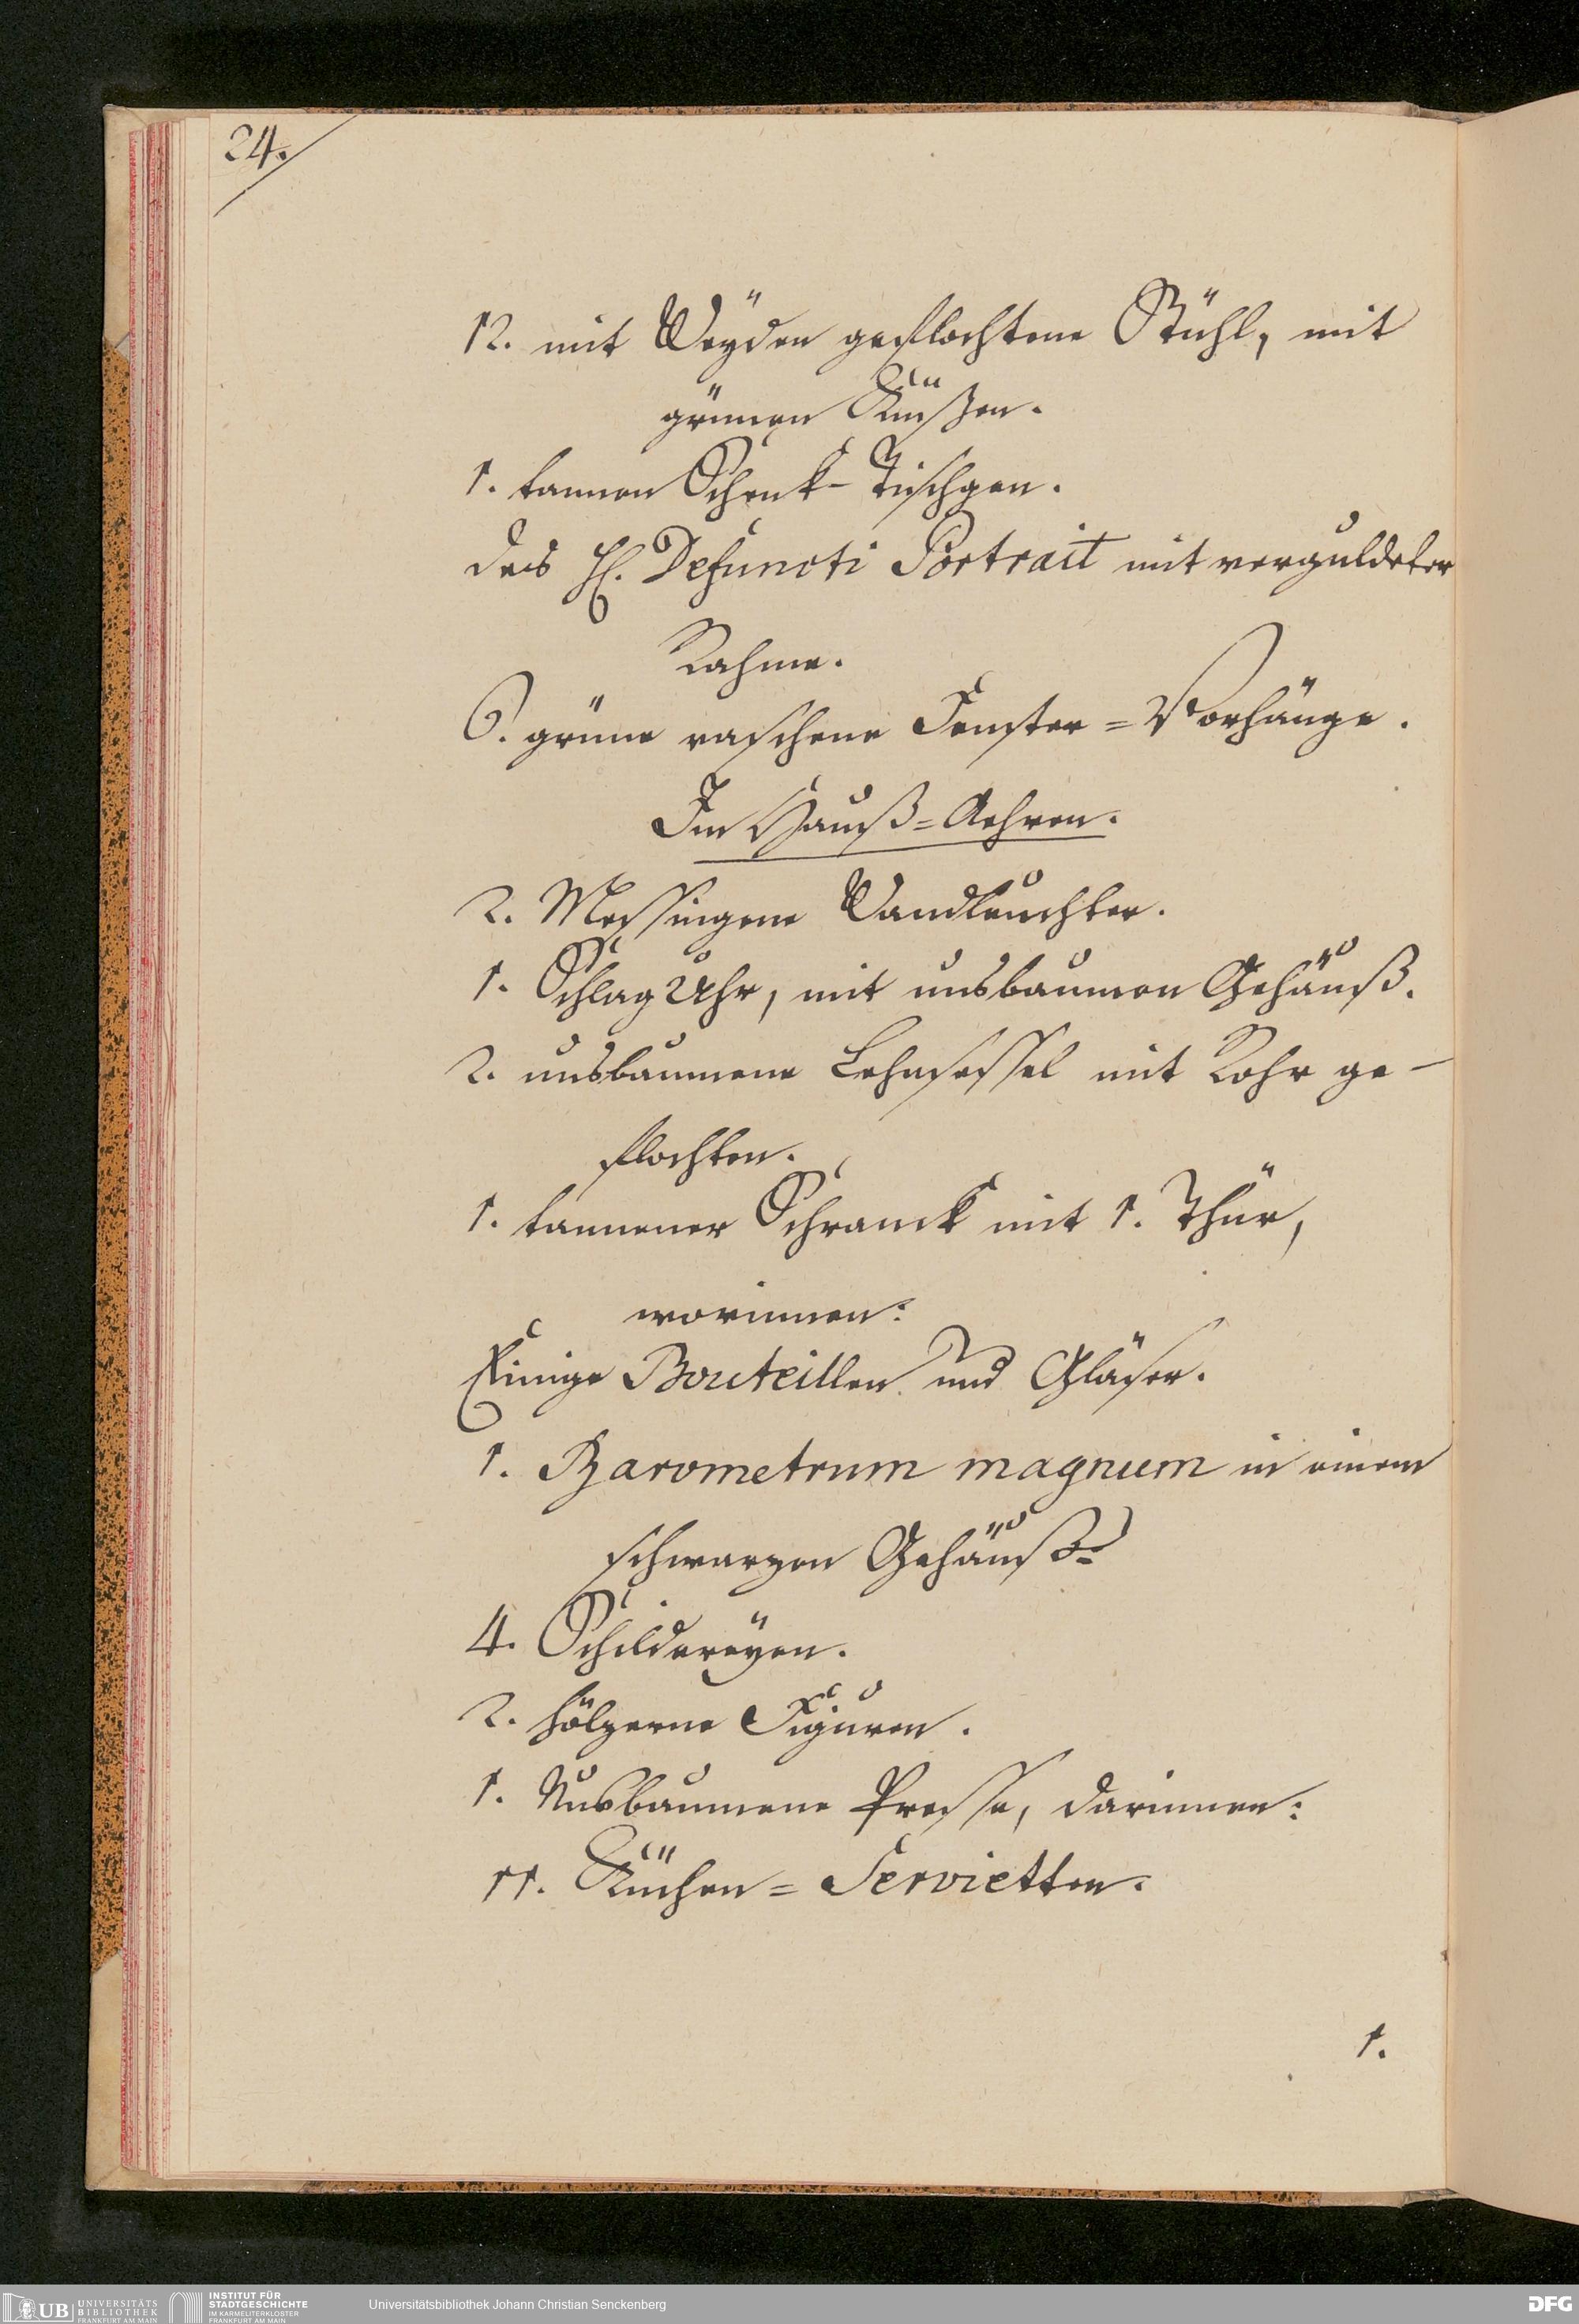 24.
12. mit Weÿden geflochtene Stühl, mit
grünen Küßen.
1. tannen Schenk-Tischgen.
des H. Defuncti Portrait mit verguldeter
Rahme.
6. grüne raschene Fenster=Vorhänge.
Im Hauß=Aehren.
2. Messingene Wandleuchter.
1. Schlag Uhr, mit nusbaumen Gehäuß.
2. nusbaumene Lehnsessel mit Rohr ge-
flochten.
1. tannener Schranck mit 1. Thür,
worinnen:
Einige Bouteillen und Gläser.
1. Barometrum magnum in einem
schwarzen Gehäuß.
4. Schildereÿen.
2. hölzerne Figuren.
1. Nusbaumene Presse, darinnen:
11. Küchen=Servietten.
1.
UB UNIVERSITÄTS
BIBLIOTHEK
FRANKFURT AM MAIN
INSTITUT FÜR
STADTGESCHICHTE
IM KARMELITERKLOSTER
FRANKFURT AM MAIN
Universitätsbibliothek Johann Christian Senckenberg
DFG